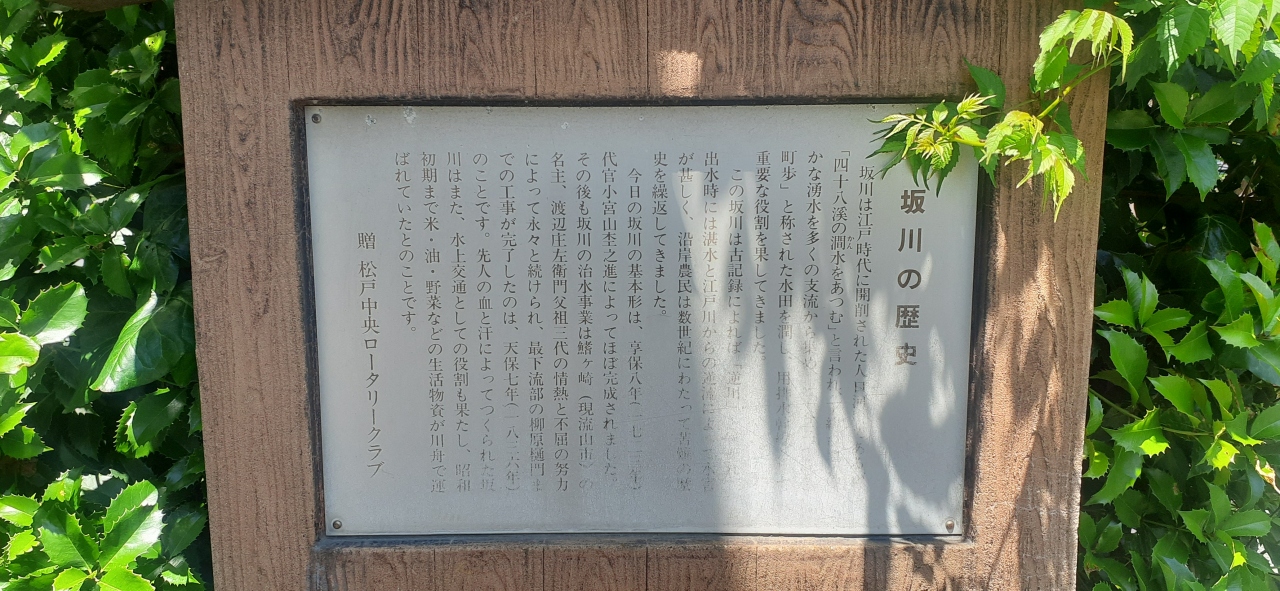 坂川の歴史
坂川は江戸時代に開削された人
「四十八渓の澗水をあつむ」と言われ
かん
かな湧水を多くの支流から
町歩」と称された水田を潤し、用排水
重要な役割を果してきました
この坂川は古記録によれば「逆川
出水時には湛水と江戸川からの逆流によ
が甚しく、沿岸農民は数世紀にわたって苦難の歴
史を繰返してきました。
今日の坂川の基本形は、享保八年(一七二三年)
代官小宮山杢之進によってほぼ完成されました。
その後も坂川の治水事業は鰭ヶ崎(現流山市)の
名主、渡辺庄左衛門父祖三代の情熱と不屈の努力
によって永々と続けられ、最下流部の柳原樋門ま
での工事が完了したのは、天保七年(一八三六年)
のことです。先人の血と汗によってつくられた坂
川はまた、水上交通としての役割も果たし、昭和
初期まで米・油・野菜などの生活物資が川舟で運
ばれていたとのことです。
贈 松戸中央ロータリークラブ